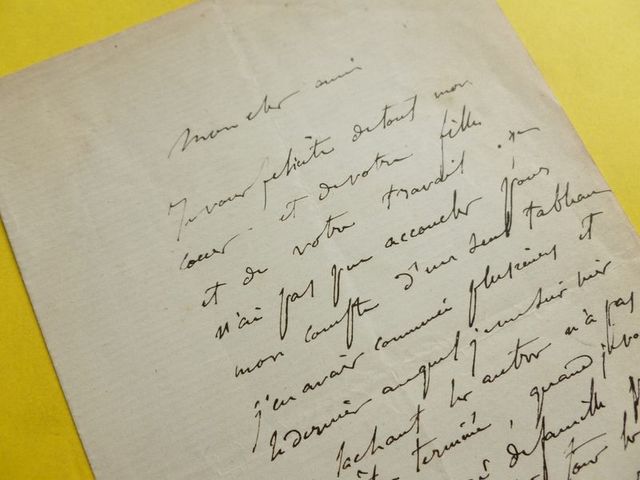 Mon cher ami
Je vous felicite de tout mon
cœur et de votre fille
et de votre travail. Je
n'ai pas pu accoucher pour
mon compte d'un seul tableau
j'en avais commencé plusieurs et
le dernier auquel j'ensuis
lachant les autres n'a pas
terminé, quand je
de famille
tous les